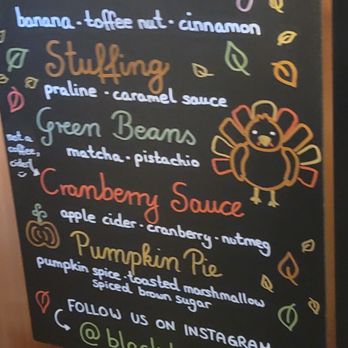 banana · toffee nut · cinnamon
Stuffing
praline · caramel sauce
Green Beans
matcha · pistachio
not a
coffee,
cider!
Cranberry Sauce
apple cider · cranberry · nutmeg
Pumpkin Pie
pumpkin spice · toasted marshmallow
spiced brown sugar
FOLLOW US ON INSTAGRAM